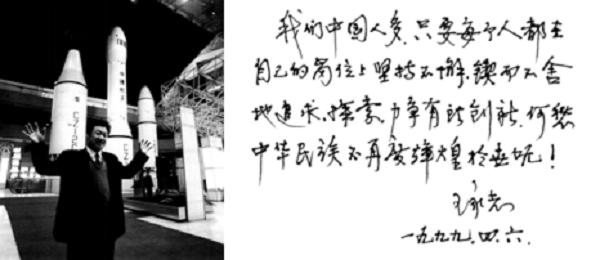 我们中国人多,只要每个人都在
自己的岗位上坚持不懈,锲而不舍
地追求、探索,力争有所创新,何愁
中华民族不再度辉煌於
王永志
一九九九.四.六.